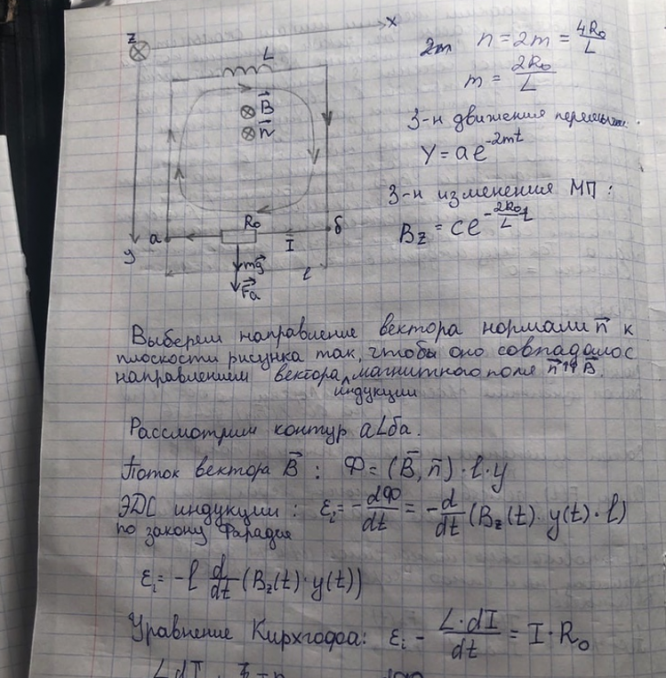 z
x
L
B⃗
n⃗
R₀
а
б
I
y
mg⃗
l
F⃗a
2m n = 2m = 4R₀/L
m = 2R₀/L
З-н движения
y = ae^(-2mt)
З-н изменения МП:
B_z = ce^(-2R₀/L t)
Выберем направление вектора нормали n⃗ к
плоскости рисунка так, чтобы оно совпадало с
направлением вектора магнитного поля n⃗↑↑B⃗.
индукции
Рассмотрим контур аLба.
Поток вектора B⃗ : Ф = (B⃗, n⃗) · l · y
ЭДС индукции : ε_i = -dФ/dt = -d/dt (B_z(t) · y(t) · l)
по закону Фарадея
ε_i = -l d/dt (B_z(t) · y(t))
Уравнение Кирхгофа: ε_i - L·dI/dt = I · R₀
LdI